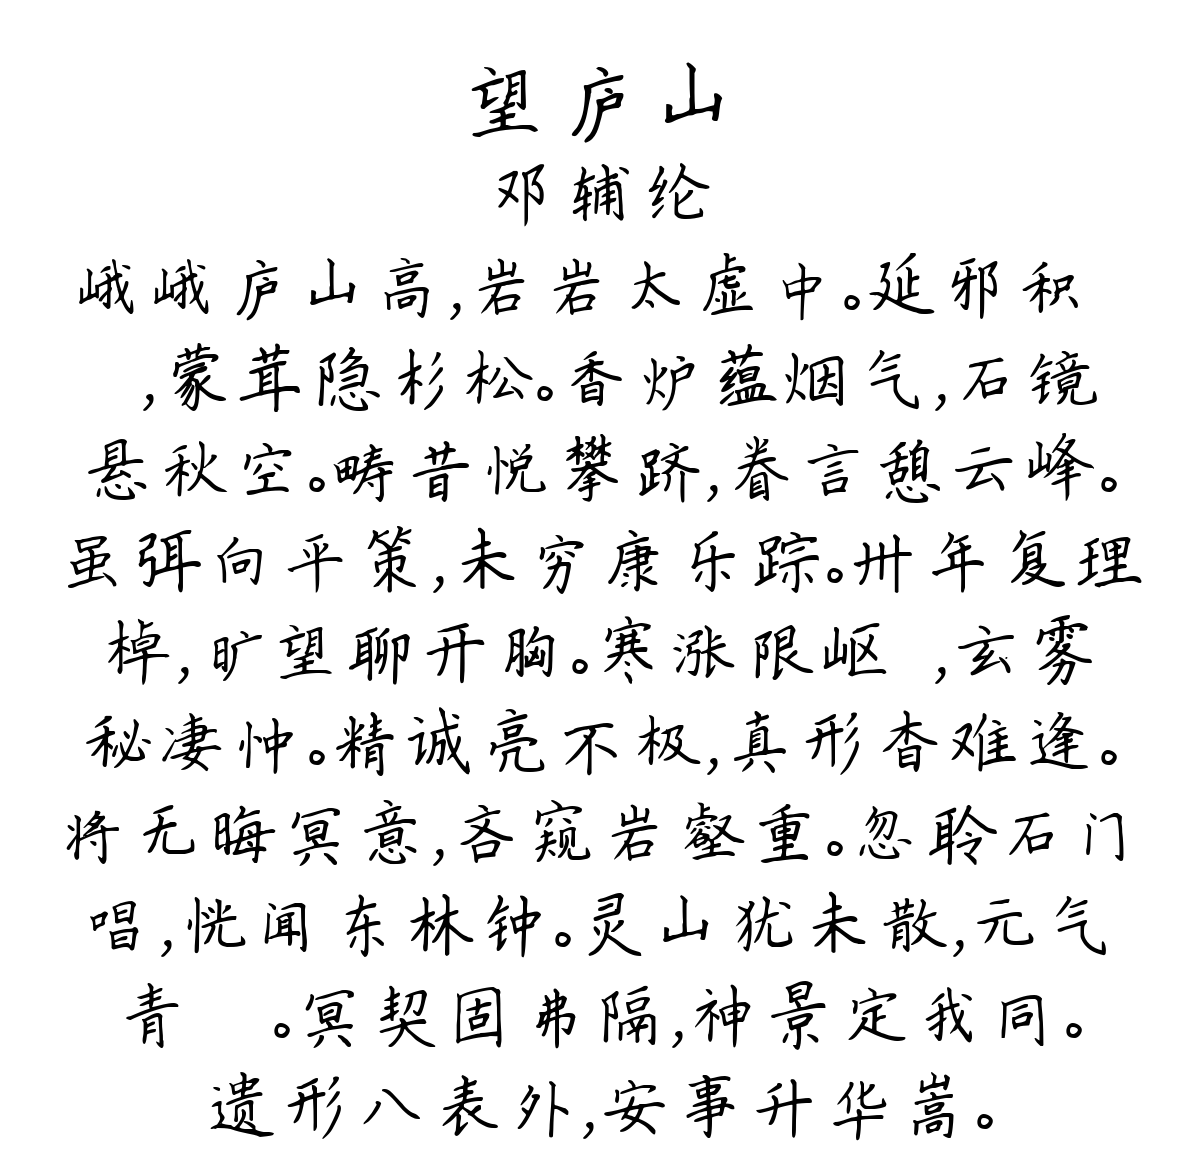 望庐山
邓辅纶
峨峨庐山高,岩岩太虚中。延邪积
,蒙茸隐杉松。香炉蕴烟气,石镜
悬秋空。畴昔悦攀跻,眷言憩云峰。
虽弭向平策,未穷康乐踪。卅年复理
棹,旷望聊开胸。寒涨限岖 ,玄雾
秘凄忡。精诚亮不极,真形杳难逢。
将无晦冥意,吝窥岩壑重。忽聆石门
唱,恍闻东林钟。灵山犹未散,元气
青 。冥契固弗隔,神景定我同。
遗形八表外,安事升华嵩。